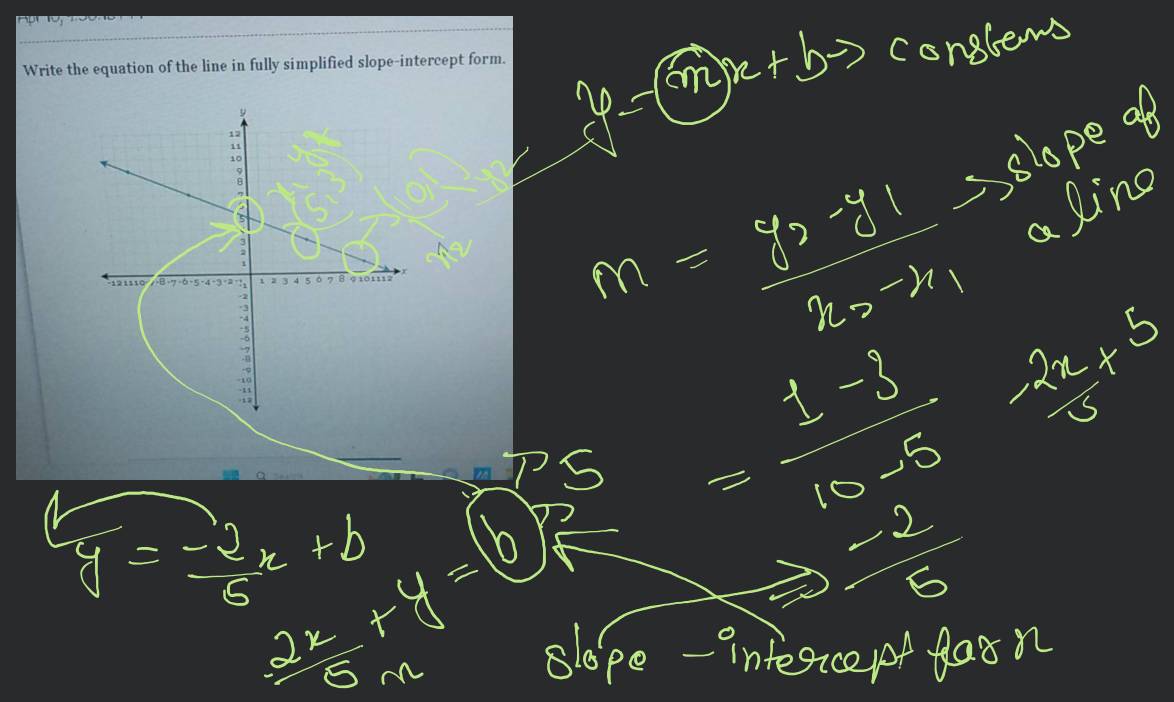 Write the equation of the line in fully simplified slope-intercept form.
y
12
11
10
9
8
7
5
3
2
1
x
-8-7-6-5-4-3-2-1
1 2 3 4 5 6 7 8 9 10 11 12
-2
-3
-4
-5
-6
-7
-8
-9
-10
-11
-12
(5,3)
(10,1)
y2
x2
y = mx + b → constans
m = y2 - y1 / x2 - x1 → slope of a line
= 1 - 3 / 10 - 5
-2x/5 + 5
⇒ -2 / 5
y = -2/5 x + b
2x/5 + y = b → 5
slope - intercept form